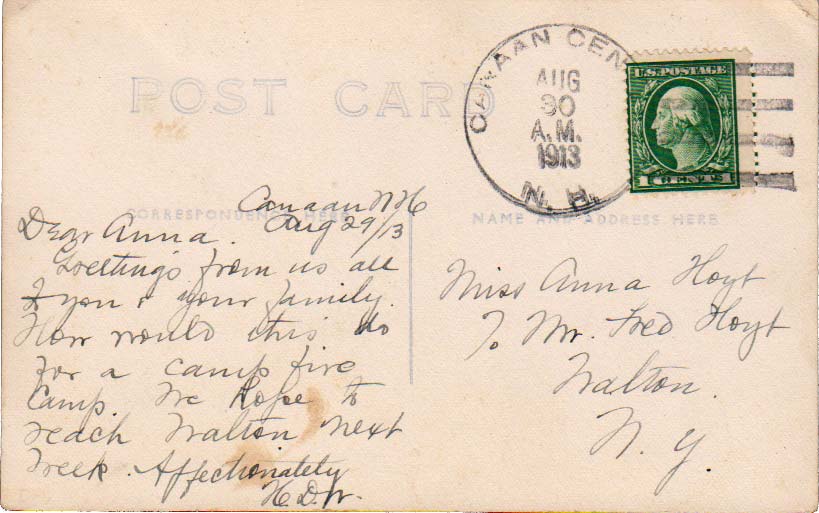 POST CARD
CANAAN CEN
AUG
30
A.M.
1913
N. H.
U.S. POSTAGE
1 CENT 1
CORRESPONDENCE HERE
NAME AND ADDRESS HERE
Canaan N H
Aug 29/13
Dear Anna.
Greetings from us all
to you & your family.
How would this do
for a camp fire
Camp. We hope to
reach Walton next
Week. Affectionately
H. D. W.
Miss Anna Hoyt
To Mr. Fred Hoyt
Walton.
N. Y.